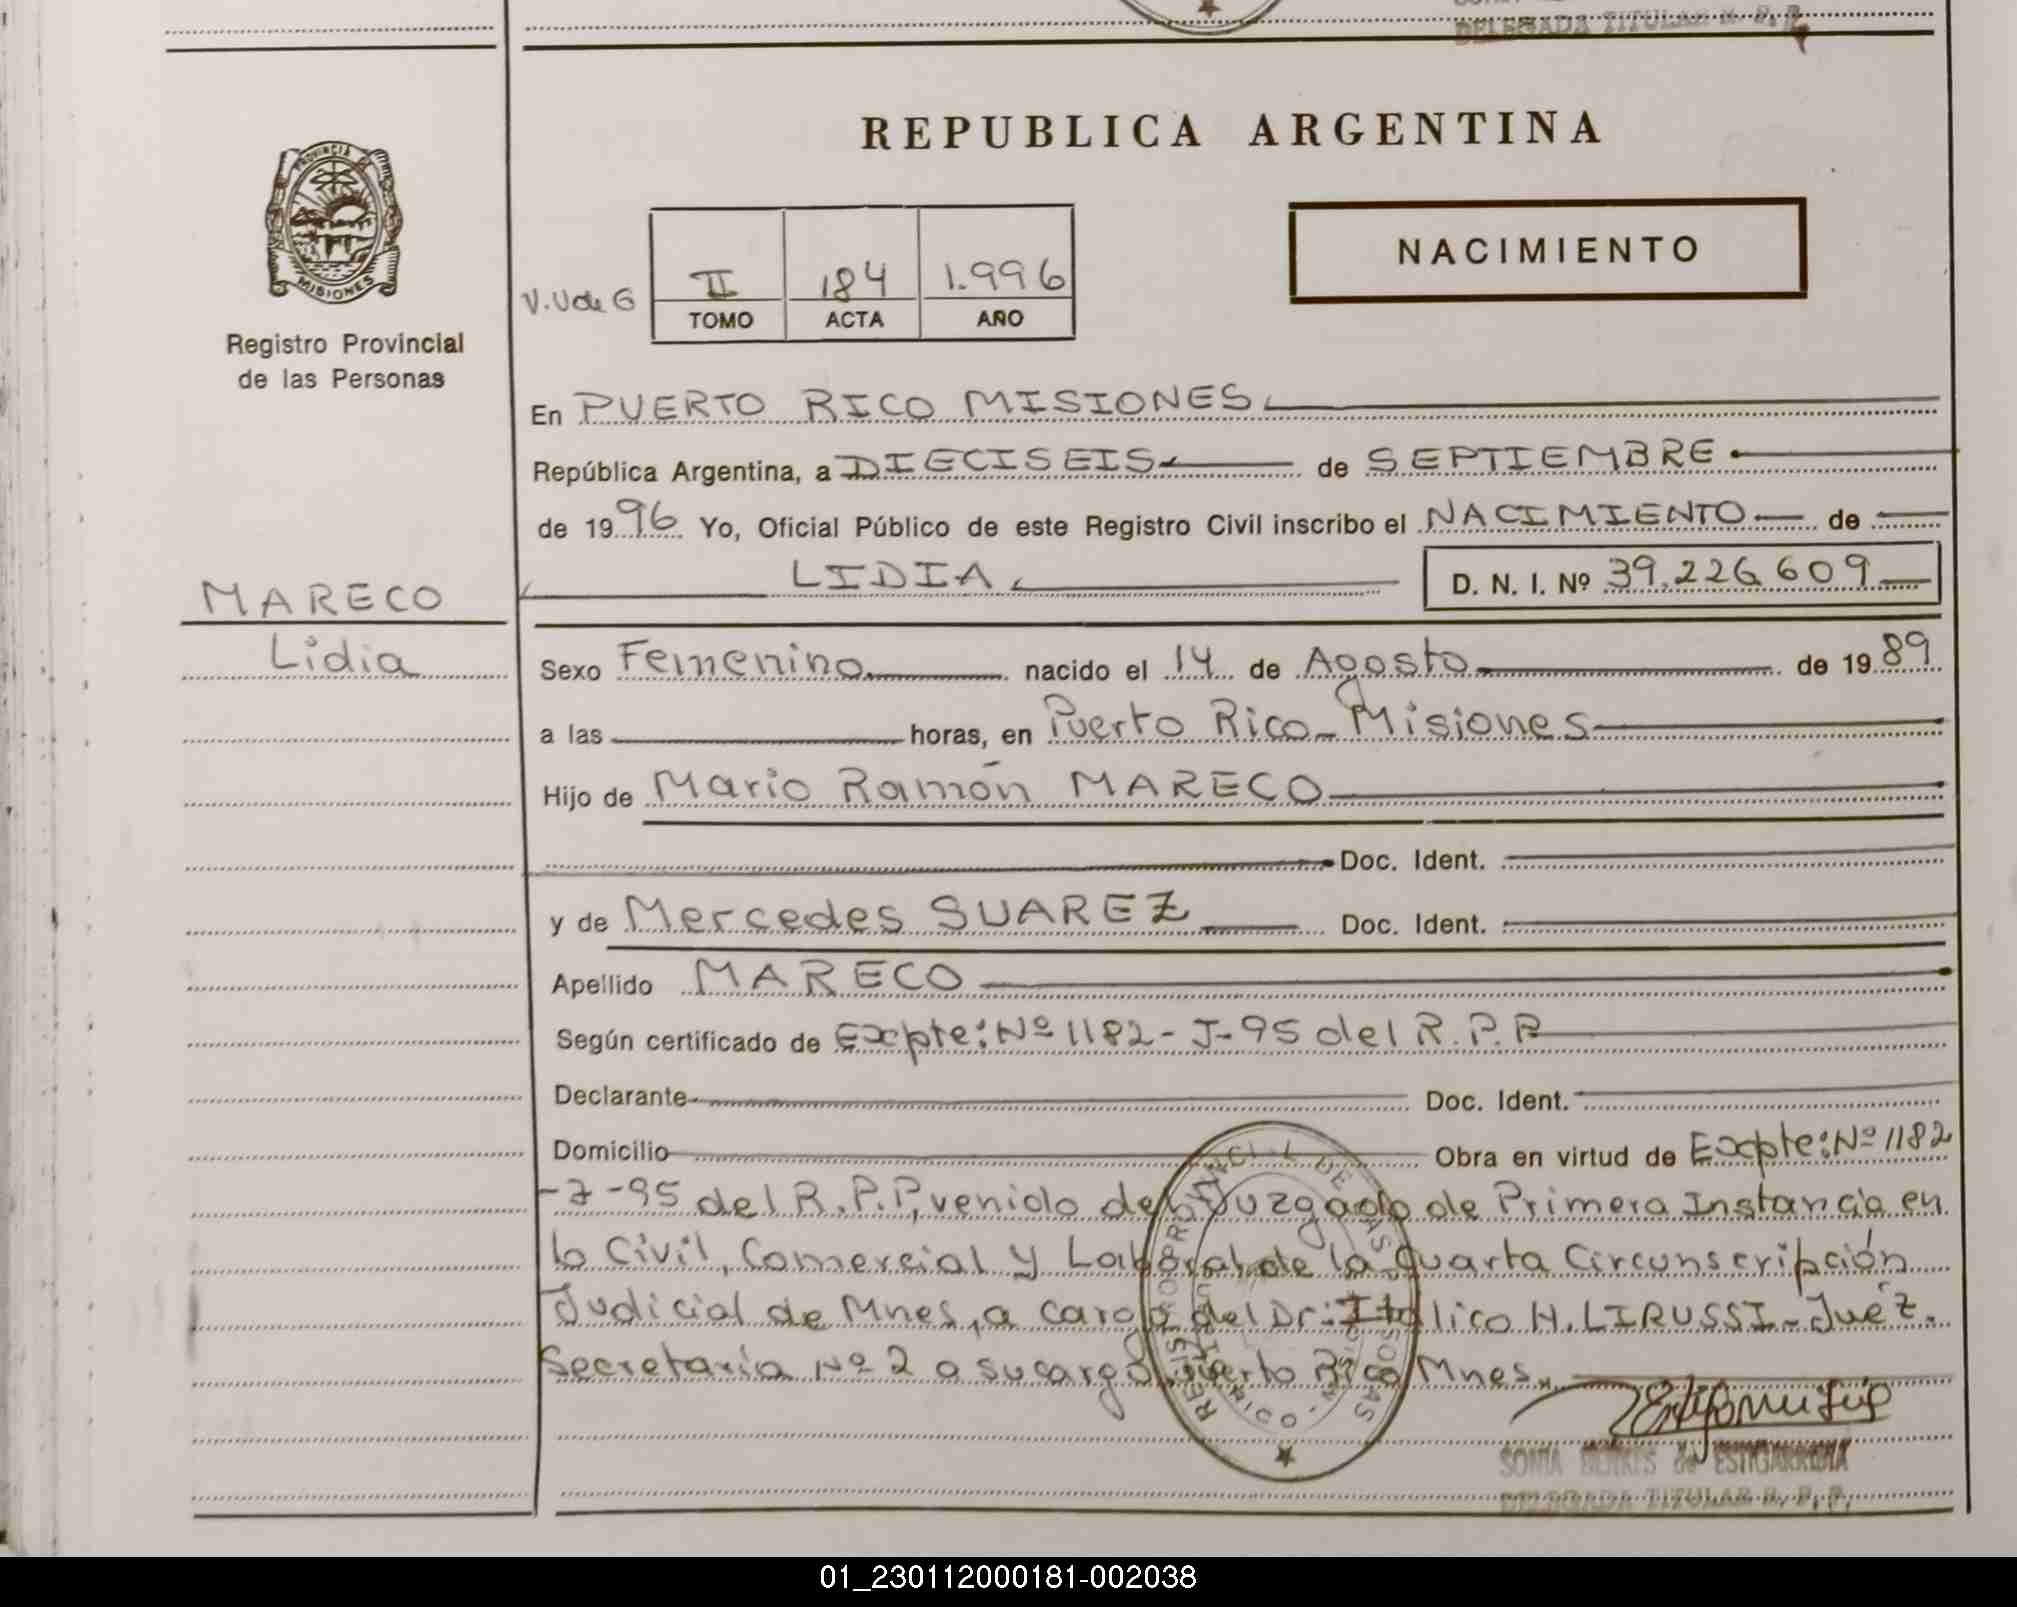 DELEGADA TITULAR R. P. P.
REPUBLICA ARGENTINA
PROVINCIA DE MISIONES
Registro Provincial
de las Personas
NACIMIENTO
V.Ude G
II 184 1.996
TOMO ACTA AÑO
En PUERTO RICO MISIONES
República Argentina, a DIECISEIS de SEPTIEMBRE
de 1996 Yo, Oficial Público de este Registro Civil inscribo el NACIMIENTO de
MARECO
LIDIA D. N. I. Nº 39.226.609
Lidia
Sexo Femenino nacido el 14 de Agosto de 1989
a las horas, en Puerto Rico-Misiones
Hijo de Mario Ramón MARECO
Doc. Ident.
y de Mercedes SUAREZ Doc. Ident.
Apellido MARECO
Según certificado de Excpte: Nº 1182-J-95 del R.P.P
Declarante Doc. Ident.
Domicilio Obra en virtud de Excpte: Nº 1182
-J-95 del R.P.P, venido del Juzgado de Primera Instancia en
lo Civil, Comercial y Laboral de la Quarta Circunscripción
Judicial de Mnes, a cargo del Dr: Italico H. LIRUSSI-Juéz.
Secretaria Nº 2 a su cargo Puerto Rico Mnes.
REGISTRO PROVINCIAL DE LAS PERSONAS
SONIA de ESTIGARRIBIA
DELEGADA TITULAR R. P. P.
01_230112000181-002038